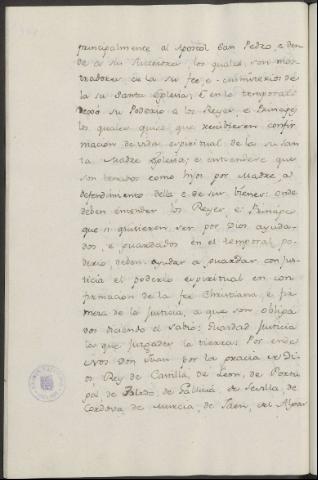 principalmente al Apostol San Pedro, e den-
de a sus sucesores, los quales, son mos-
tradores de la su fee, e ministerios de
la su Santa Iglesia; E en lo temporal
dexó su Poderio a los Reyes, e Principes
los quales quiso que recibiesen confir-
macion de vida espiritual de la su san-
ta Madre Iglesia; e entendiese que
son tenudos como hijos por Madre a
defendimiento della e de sus bienes: onde
deben entender los Reyes, e Principes
que si quisieren, ser, por Dios, ayuda-
dos, e guardados en el temporal po-
derio, deben ayudar a guardar, con jus-
ticia el poderio espiritual en con-
firmacion de la fee Christiana, e fir-
meza de la Justicia, a que son obliga-
dos diciendo el Sabio: Guardad Justicia
los que juzgades la tierra: Por ende
Nos Don Juan por la gracia de Di-
os, Rey de Castilla, de Leon, de Portu-
gal, de Toledo, de Gallicia, de Sevilla, de
Cordova, de Murcia, de Jaen, del Algar-